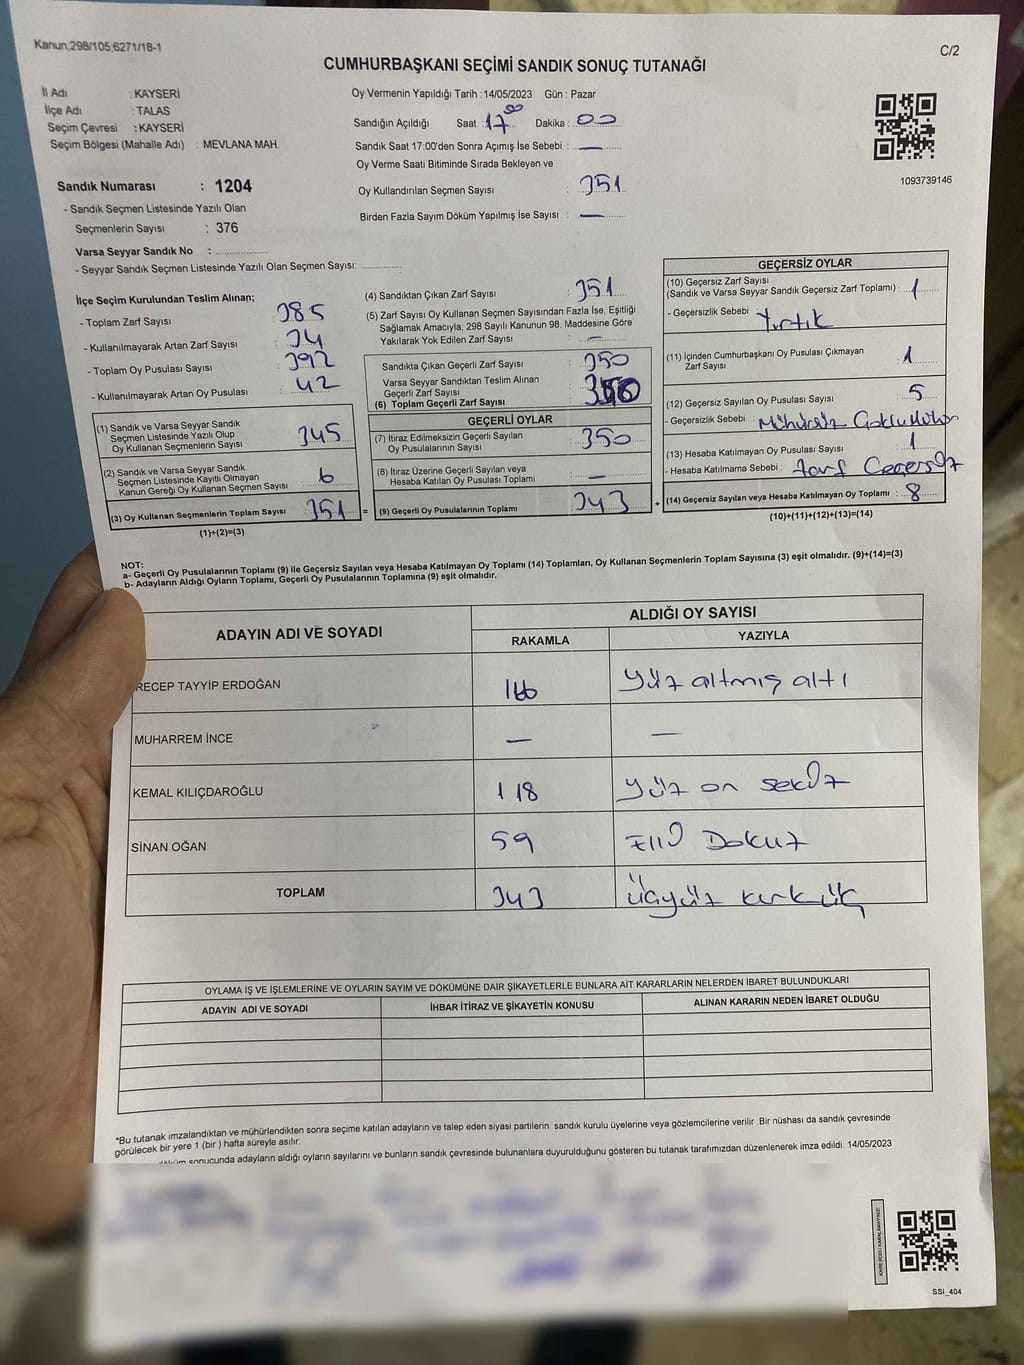 Kanun;298/105;6271/18-1
C/2
CUMHURBAŞKANI SEÇİMİ SANDIK SONUÇ TUTANAĞI
İl Adı : KAYSERİ
İlçe Adı : TALAS
Seçim Çevresi : KAYSERİ
Seçim Bölgesi (Mahalle Adı) : MEVLANA MAH.
Sandık Numarası : 1204
- Sandık Seçmen Listesinde Yazılı Olan
Seçmenlerin Sayısı : 376
Varsa Seyyar Sandık No : ..................
- Seyyar Sandık Seçmen Listesinde Yazılı Olan Seçmen Sayısı: .............
Oy Vermenin Yapıldığı Tarih :14/05/2023 Gün : Pazar
Sandığın Açıldığı Saat : 17 00 Dakika : 00
Sandık Saat 17:00'den Sonra Açımış İse Sebebi : —
Oy Verme Saati Bitiminde Sırada Bekleyen ve
Oy Kullandırılan Seçmen Sayısı : 351
Birden Fazla Sayım Döküm Yapılmış İse Sayısı : —
1093739146
İlçe Seçim Kurulundan Teslim Alınan;
- Toplam Zarf Sayısı 385
- Kullanılmayarak Artan Zarf Sayısı 34
- Toplam Oy Pusulası Sayısı 392
- Kullanılmayarak Artan Oy Pusulası 42
(1) Sandık ve Varsa Seyyar Sandık
Seçmen Listesinde Yazılı Olup
Oy Kullanan Seçmenlerin Sayısı 345
(2) Sandık ve Varsa Seyyar Sandık
Seçmen Listesinde Kayıtlı Olmayan
Kanun Gereği Oy Kullanan Seçmen Sayısı 6
(3) Oy Kullanan Seçmenlerin Toplam Sayısı 351 =
(1)+(2)=(3)
(4) Sandıktan Çıkan Zarf Sayısı 351
(5) Zarf Sayısı Oy Kullanan Seçmen Sayısından Fazla İse, Eşitliği
Sağlamak Amacıyla; 298 Sayılı Kanunun 98. Maddesine Göre
Yakılarak Yok Edilen Zarf Sayısı : —
Sandıkta Çıkan Geçerli Zarf Sayısı 350
Varsa Seyyar Sandıktan Teslim Alınan
Geçerli Zarf Sayısı
(6) Toplam Geçerli Zarf Sayısı 350
GEÇERLİ OYLAR
(7) İtiraz Edilmeksizin Geçerli Sayılan
Oy Pusulalarının Sayısı : 350
(8) İtiraz Üzerine Geçerli Sayılan veya
Hesaba Katılan Oy Pusulası Toplamı —
(9) Geçerli Oy Pusulalarının Toplamı 343 +
GEÇERSİZ OYLAR
(10) Geçersiz Zarf Sayısı
(Sandık ve Varsa Seyyar Sandık Geçersiz Zarf Toplamı) : 1
- Geçersizlik Sebebi : Yırtık
(11) İçinden Cumhurbaşkanı Oy Pusulası Çıkmayan
Zarf Sayısı : 1
(12) Geçersiz Sayılan Oy Pusulası Sayısı : 5
- Geçersizlik Sebebi : Mühürsüz
(13) Hesaba Katılmayan Oy Pusulası Sayısı : 1
- Hesaba Katılmama Sebebi : Zarf Geçersiz
(14) Geçersiz Sayılan veya Hesaba Katılmayan Oy Toplamı : 8
(10)+(11)+(12)+(13)=(14)
NOT:
a- Geçerli Oy Pusulalarının Toplamı (9) ile Geçersiz Sayılan veya Hesaba Katılmayan Oy Toplamı (14) Toplamları, Oy Kullanan Seçmenlerin Toplam Sayısına (3) eşit olmalıdır. (9)+(14)=(3)
b- Adayların Aldığı Oyların Toplamı, Geçerli Oy Pusulalarının Toplamına (9) eşit olmalıdır.
ADAYIN ADI VE SOYADI ALDIĞI OY SAYISI
RAKAMLA YAZIYLA
RECEP TAYYİP ERDOĞAN 166 Yüz altmış altı
MUHARREM İNCE — —
KEMAL KILIÇDAROĞLU 118 yüz on sekiz
SİNAN OĞAN 59 Elli Dokuz
TOPLAM 343 üçyüz kırk üç
OYLAMA İŞ VE İŞLEMLERİNE VE OYLARIN SAYIM VE DÖKÜMÜNE DAİR ŞİKAYETLERLE BUNLARA AİT KARARLARIN NELERDEN İBARET BULUNDUKLARI
ADAYIN ADI VE SOYADI İHBAR İTİRAZ VE ŞİKAYETİN KONUSU ALINAN KARARIN NEDEN İBARET OLDUĞU
*Bu tutanak imzalandıktan ve mühürlendikten sonra seçime katılan adayların ve talep eden siyasi partilerin sandık kurulu üyelerine veya gözlemcilerine verilir .Bir nüshası da sandık çevresinde
görülecek bir yere 1 (bir ) hafta süreyle asılır.
sonucunda adayların aldığı oyların sayılarını ve bunların sandık çevresinde bulunanlara duyurulduğunu gösteren bu tutanak tarafımızdan düzenlenerek imza edildi. 14/05/2023
SSI_404